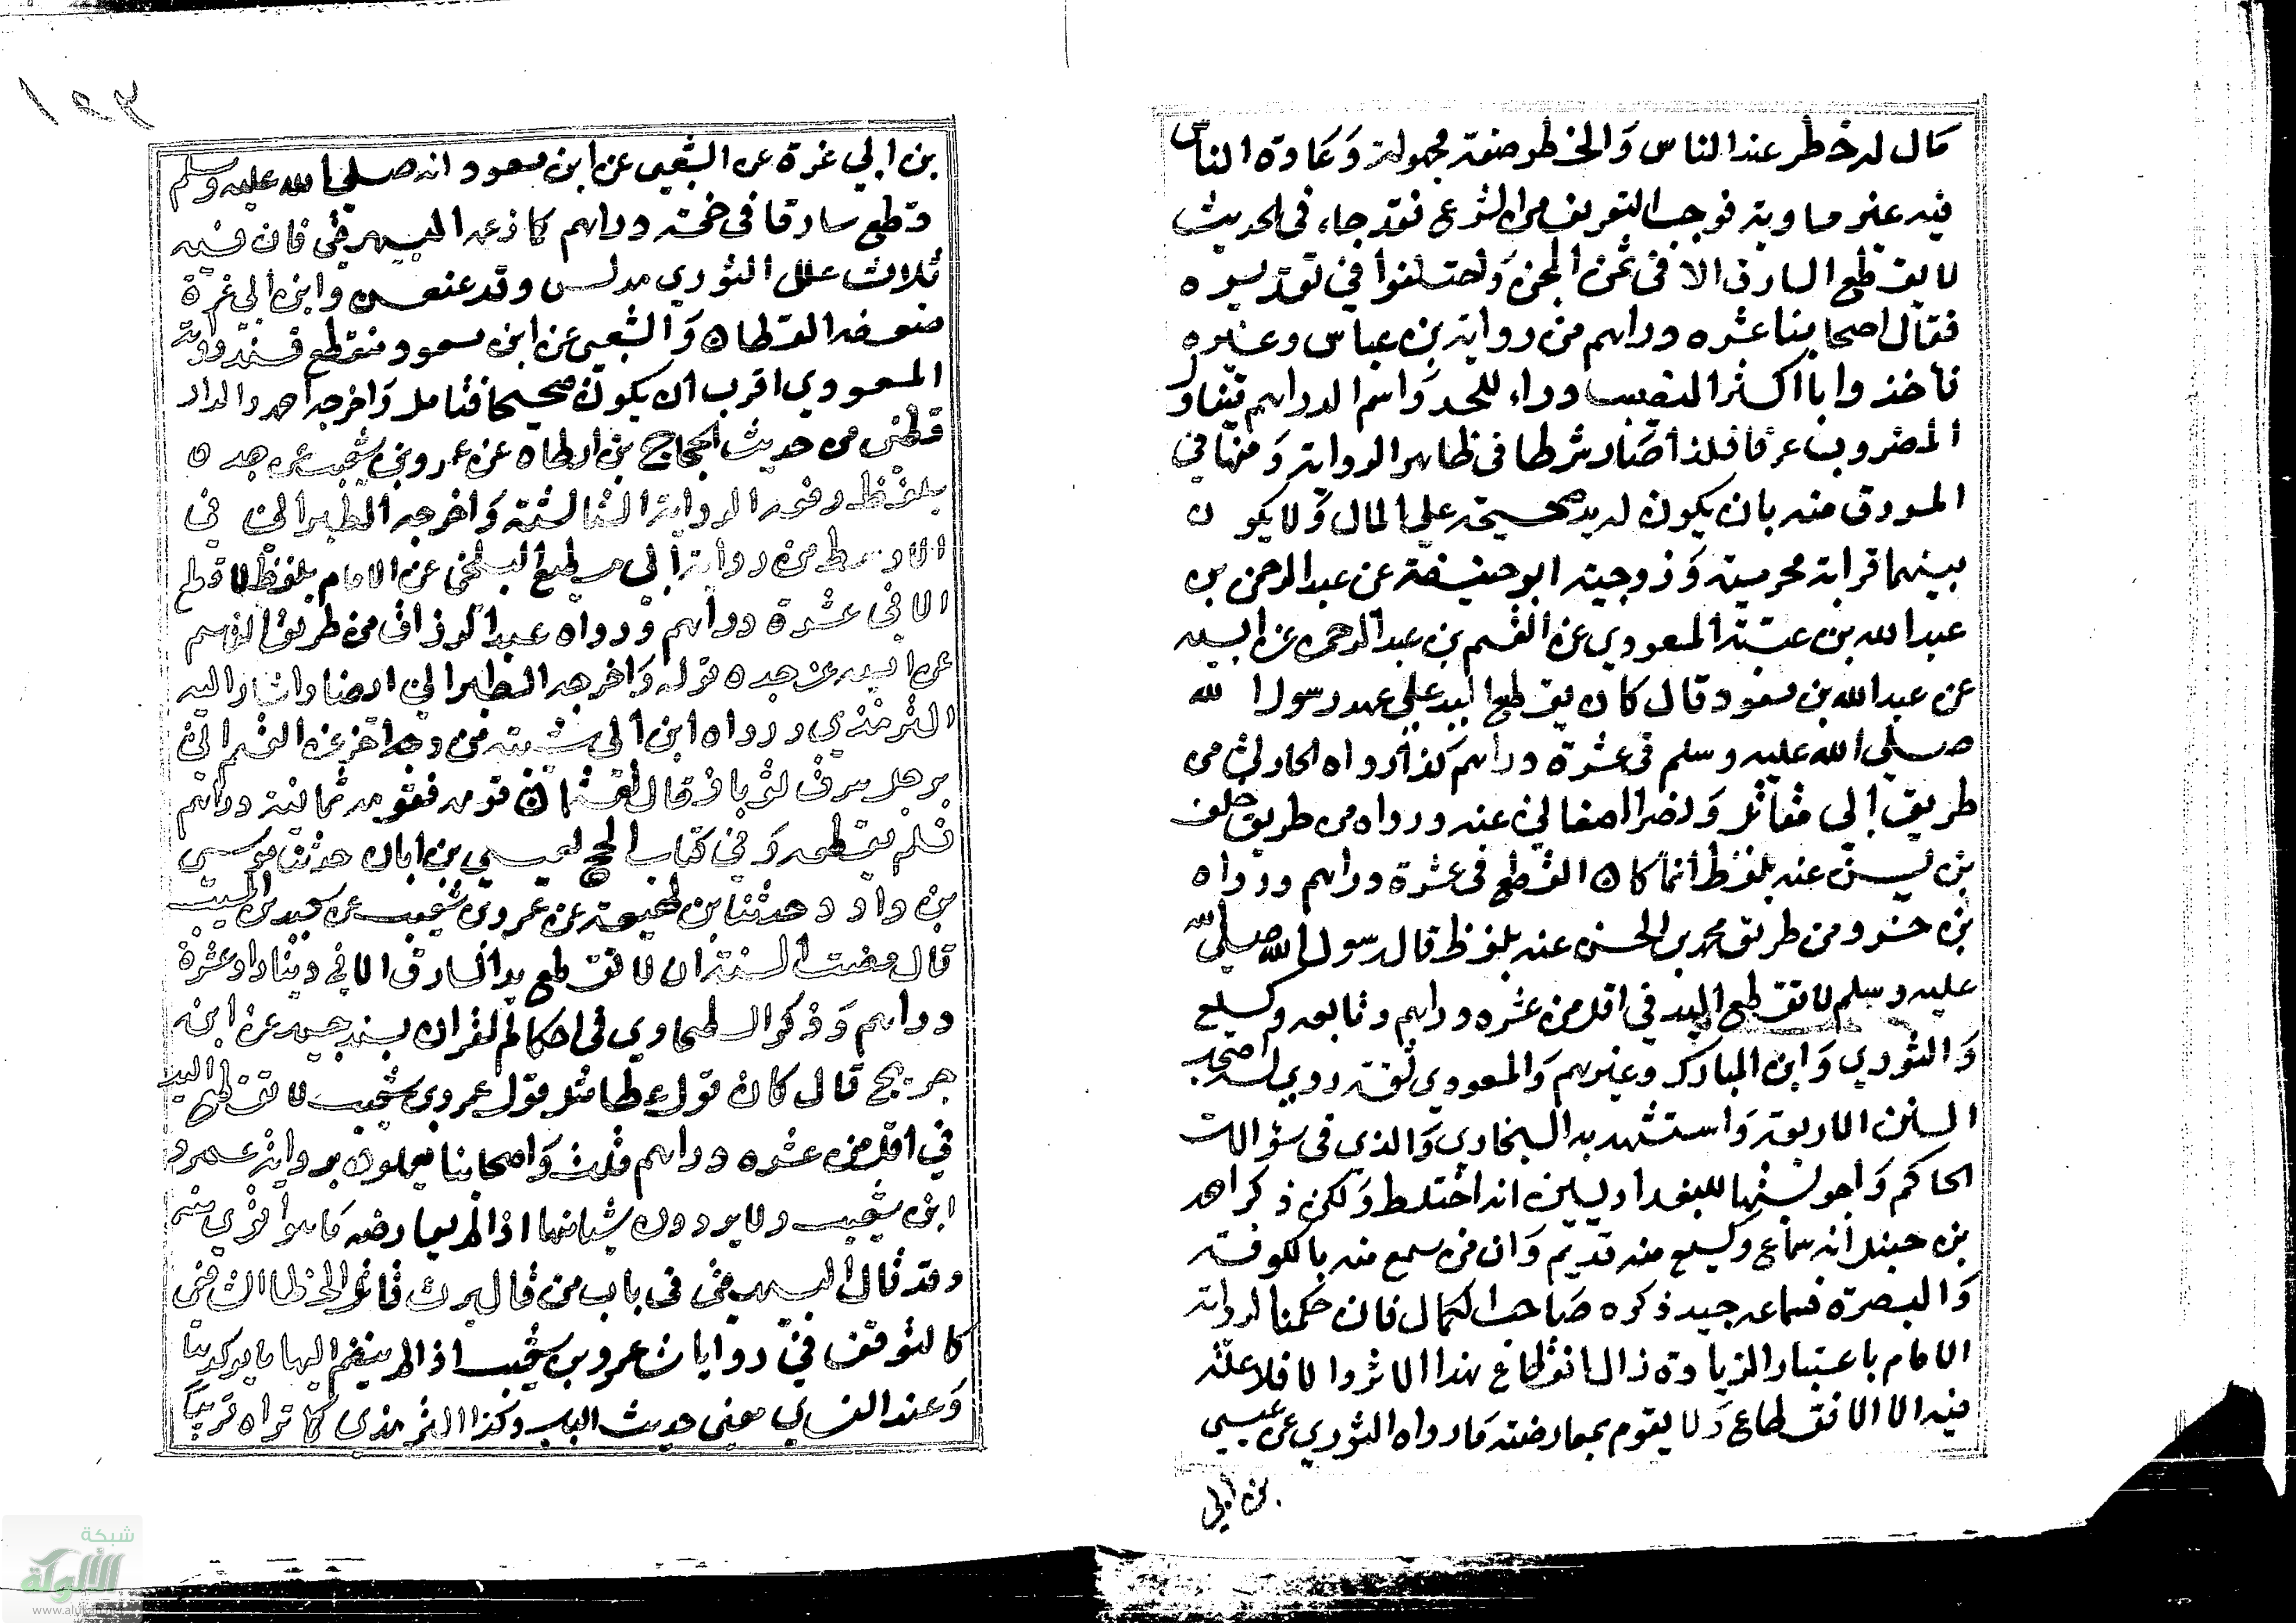 مال له خطر عند الناس والخطر صفة مجهولة وعادة الناس
فيه غير مساوية فوجب التعريف من الشرع فقد جاء في الحديث
لا يقطع السارق الا في ثمن المجن واختلفوا في تقديره
فقال اصحابنا عشره دراهم من رواية بن عباس وغيره
فأخذوا باكثر النصيب درا للحد واسم الدراهم تتناول
المضروب عرفا فلذا صار شرطا في ظاهر الرواية ومنها في
المسروق منه بان يكون له يد صحيحة علي المال ولا يكون
بينهما قرابة محرمية وزوجية ابو حنيفة عن عبد الرحمن بن
عبد الله بن عتبة المسعودي عن القسم بن عبد الرحمن عن ابيه
عن عبد الله بن مسعود قال كان يقطع اليد علي عهد رسول الله
صلي الله عليه وسلم في عشرة دراهم كذا رواه الحارثي من
طريق ابي مقاتل ونصر الصغاني عنه ورواه من طريق خلف
بن يسن عنه بلفظ انما كان القطع في عشرة دراهم ورواه
بن خسرو من طريق محمد بن الحسن عنه بلفظ قال رسول الله صلي الله
عليه وسلم لا تقطع اليد في اقل من عشره دراهم وتابعه وكيع
والثوري وابن المبارك وغيرهم والمسعودي ثقة روي له اصحاب
السنن الاربعة واستشهد به البخاري والذي في سؤالات
الحاكم واجوبتها للبغداديين انه اختلط ولكن ذكر احمد
بن حنبل انه سماع وكيع منه قديم وان من سمع منه بالكوفة
والبصرة فسماعه جيد ذكره صاحب الكمال فان حكمنا لرواية
الامام باعتبار الزيادة زال انقطاع هذا الاثر والا فلا علة
فيه الا الانقطاع ولا يقوم بمعارضته ما رواه الثوري عن عيسي
بن ابي
١٥٣
بن ابي عزة عن الشعبي عن ابن مسعود انه صلي الله عليه وسلم
قطع سارقا في خمسة دراهم كما زعمه البيهقي فان فيه
ثلاث علل الثوري مدلس وقد عنعن وابن ابي عزة
ضعفه القطان والشعبي عن ابن مسعود منقطع فسند رواية
المسعودي اقرب ان يكون صحيحا فتامل واخرجه احمد والدار
قطني من حديث الحجاج بن ارطاه عن عمرو بن شعيب عن جده
بلفظ رفعه الرواية الثالثة واخرجه الطبراني في
الاوسط من رواية ابي مطيع البلخي عن الامام بلفظ لا قطع
الا في عشرة دراهم ورواه عبد الرزاق من طريق القسم
عن ابيه عن جده قوله واخرجه الطبراني ايضا واشار اليه
الترمذي ورواه ابن ابي شيبة من وجه اخر عن القسم اتي
برجل سرق ثوبا فقال لعثمان قومه فقومه ثمانية دراهم
فلم يقطعه وفي كتاب الحج لعيسي بن ابان حدثنا موسي
بن داود حدثنا بن لهيعة عن عمرو بن شعيب عن سعيد بن المسيب
قال مضت السنة ان لا تقطع يد السارق الا في دينار او عشرة
دراهم وذكر الطحاوي في احكام القران بسند جيد عن ابن
جريج قال كان قول عطا مثل قول عمرو بن شعيب لا تقطع اليد
في اقل من عشره دراهم قلت واصحابنا يعملون برواية عمرو
ابن شعيب ولا يردون شيا منها اذا لم يعارضه ما هوا قوي منه
وقد قال البيهقي في باب من قال يرث قاتل الخطا الشافعي
كالتوقف في روايات عمرو بن شعيب اذا لم ينضم اليها ما يؤكدها
وعند النساي معني حديث الباب وكذا الترمذي كما تراه قريبا
شبكة
الألوكة